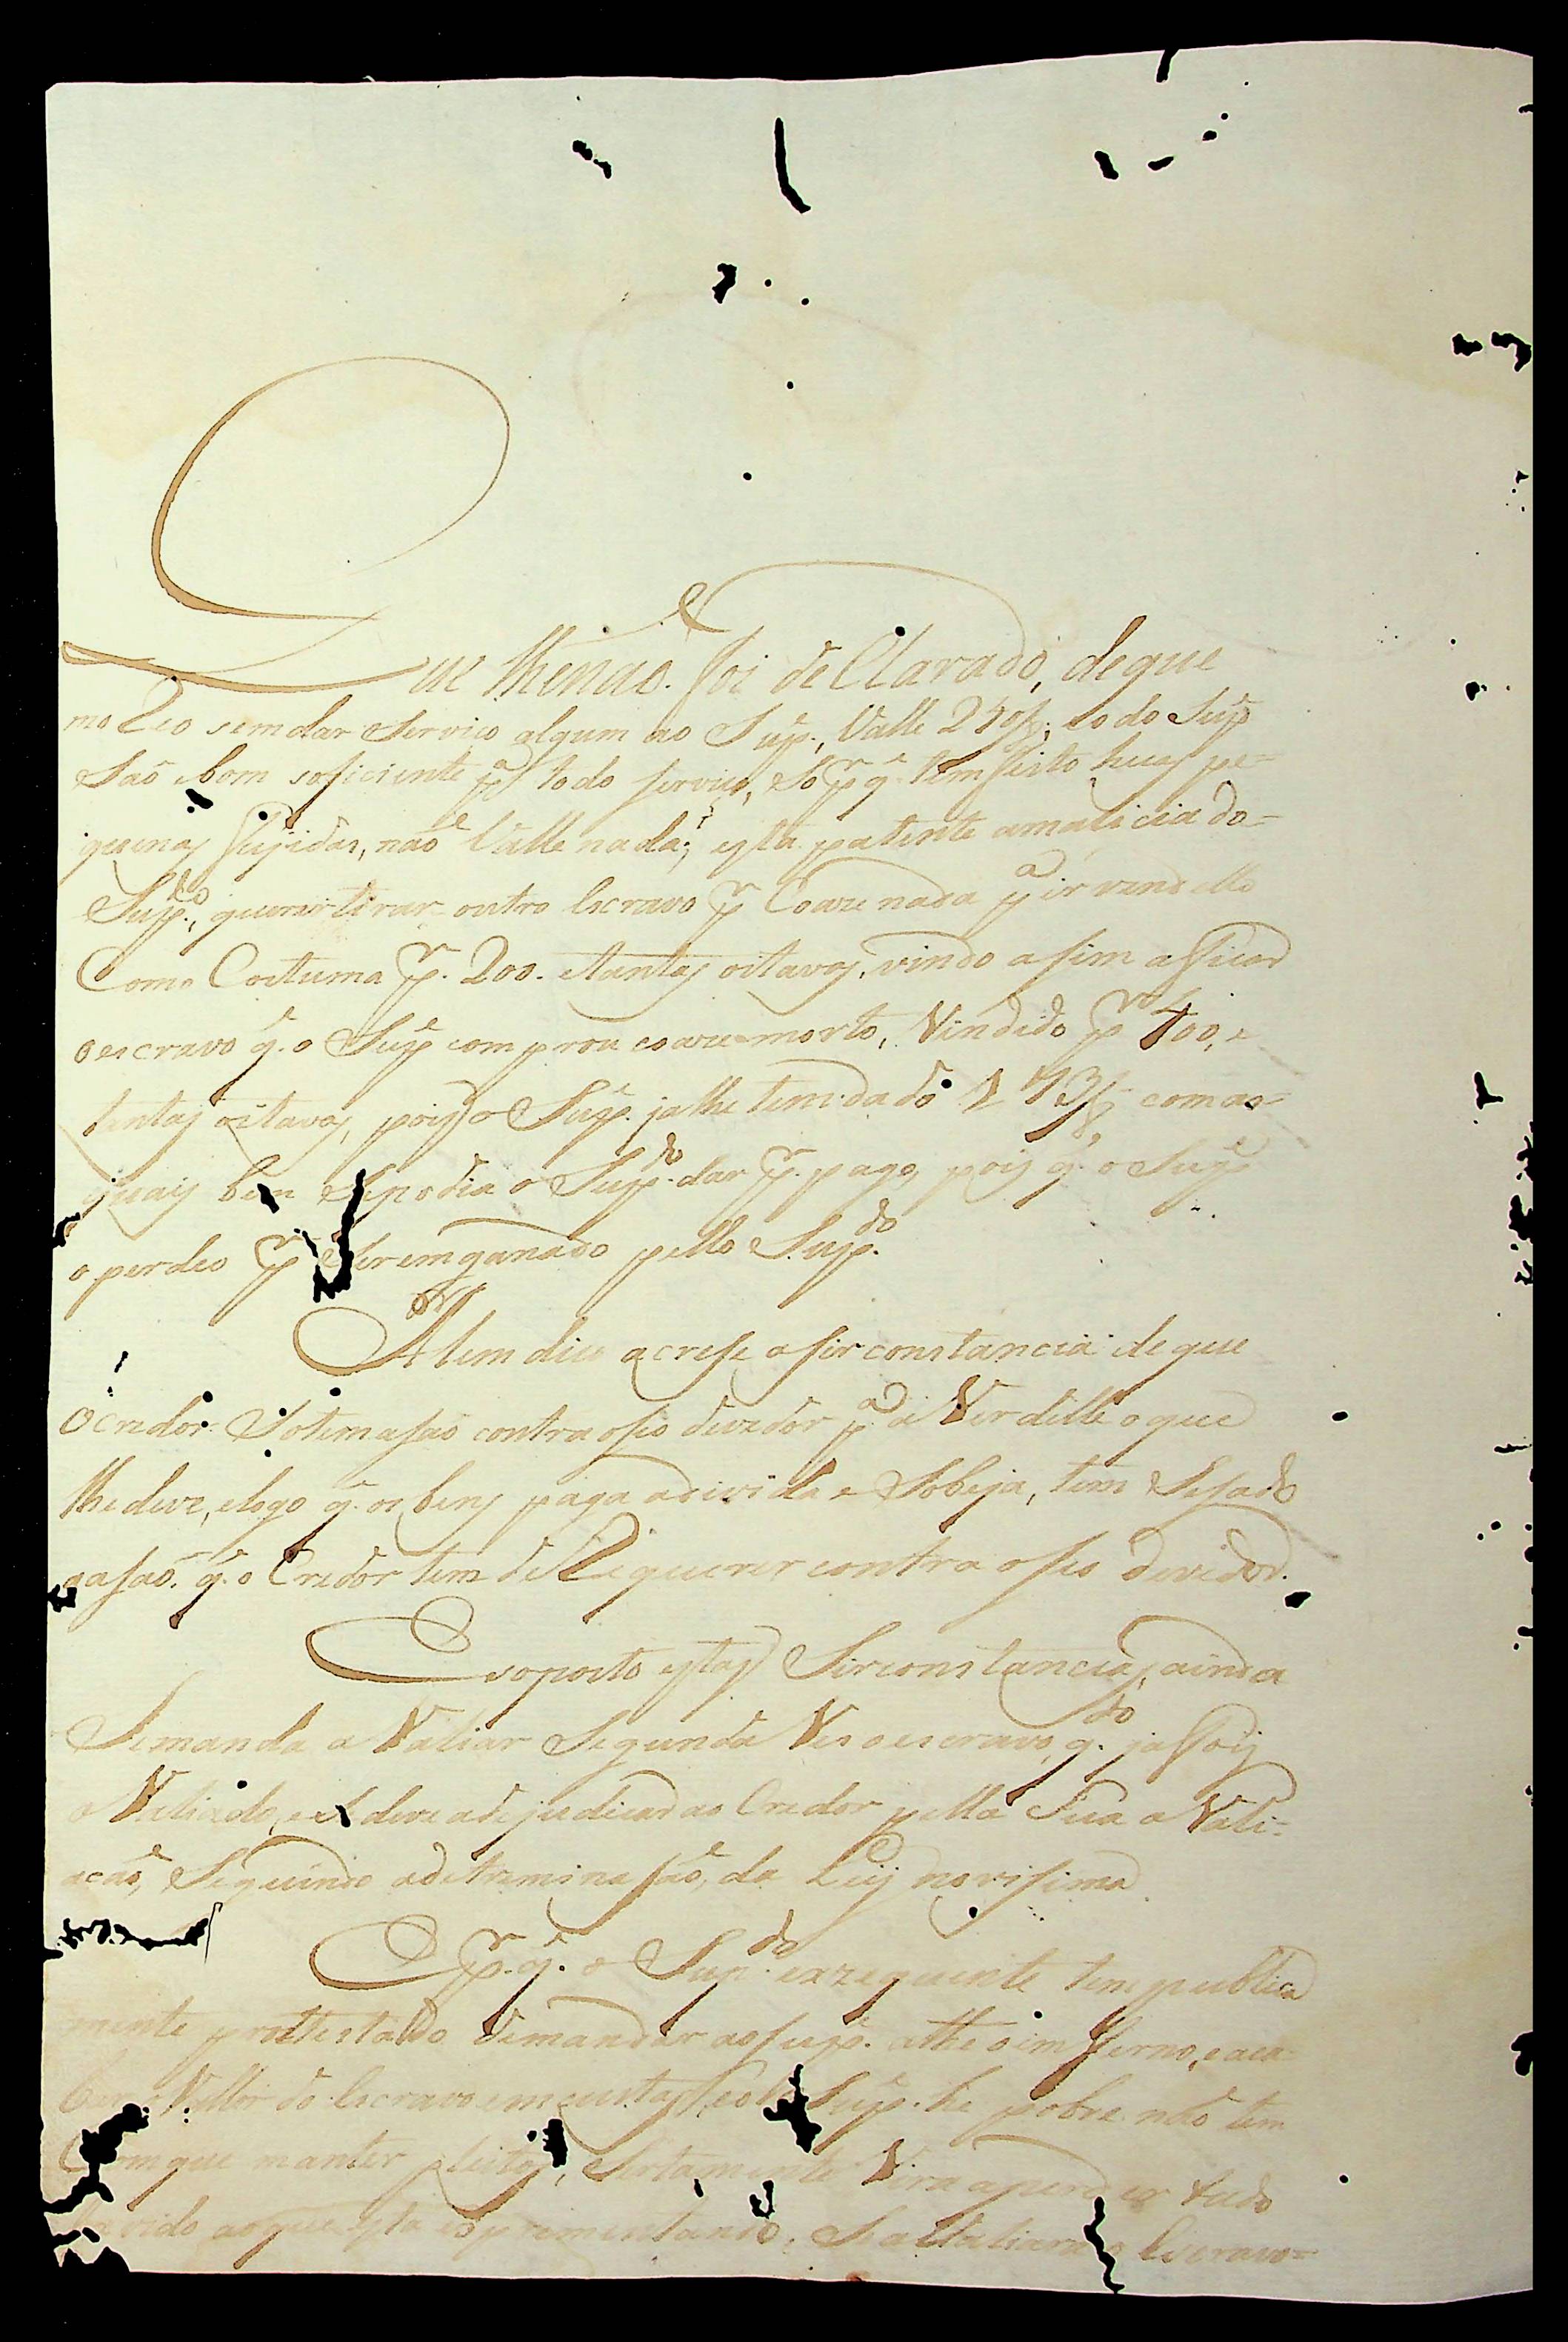 Que lhe não foi deClarado, de que
moReo sem dar Serviço algum ao Sup.e, Valle 250/8as; eo do Sup.e
Saõ e bom soficiente p.a todo serviço, Só p.r q.' tem feito huas pe-
quenas fugidas, naõ Valle nada; esta patente amalicia do-
Sup.do, querer tirar outro Escravo p.r Coaze nada p.a ir vendello
Como Costuma p.r 200. etantas oitavas, vindo afim afficar
oescravo q.' o Sup.e comprou coaze morto, Vindido p.r 400, e
tantas oitavas, pois o Sup.e ja lhe tem dado 173/8as com as
quais bem Sepodia o Sup.do dar p.r pago, pois q.' o Sup.e
operdeo p.r Ser emganado pello Sup.do
Alem diso acrese asirconstancia de que
OCredor Sótem asaõ contra oseo devedor p.a aVer delle o que
lhe deve, elogo q.' os bens paga adivida e Sobeja, tem Sesado
aasaõ q.' o Credor tem deRequerer contra oseo devedor.
Esoposto estas Sirconstancias, ainda
Semanda aValiar Segunda Ves oescravo q.' ja foy
aValiado, e Se deve adejudicar ao Credor pella Sua aVali-
acaõ, Seguindo adetreminasaõ, da Ley novisima
E p.r q.' o Sup.do exzequente tem publica
mente prottestado demandar ao sup.e athe o imferno, e aca-
bar oVallor do Escravo em custas, e o Sup.e he pobre não tem
Com que manter pleitos, Sertamente Vira aperder tudo
devido aoque esta espremintando, Se aValiara o Escravo=